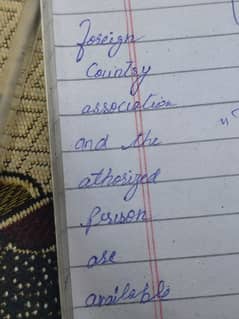 foreign
Country
association
and the
athorized
person
are
available